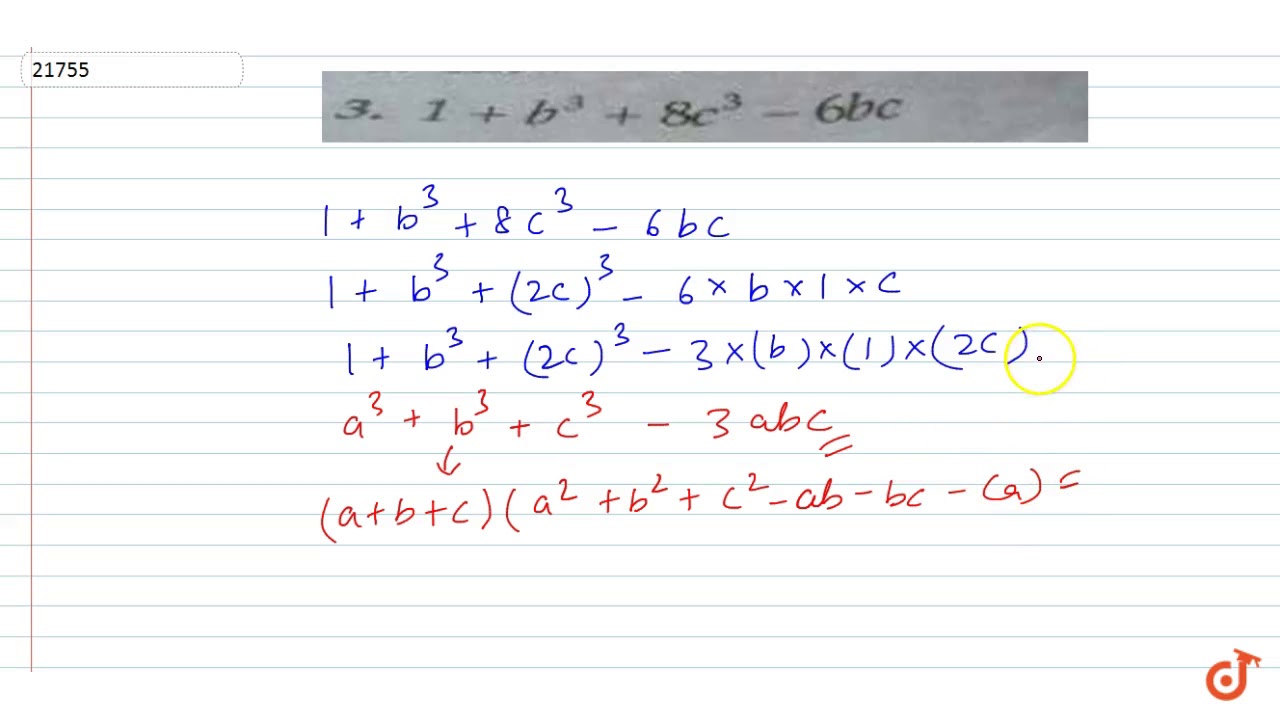 21755
3. 1 + b³ + 8c³ − 6bc
1 + b³ + 8c³ − 6bc
1 + b³ + (2c)³ − 6 × b × 1 × c
1 + b³ + (2c)³ − 3 × (b) × (1) × (2c).
a³ + b³ + c³ − 3abc
↓
(a+b+c)(a² + b² + c² − ab − bc − ca) =